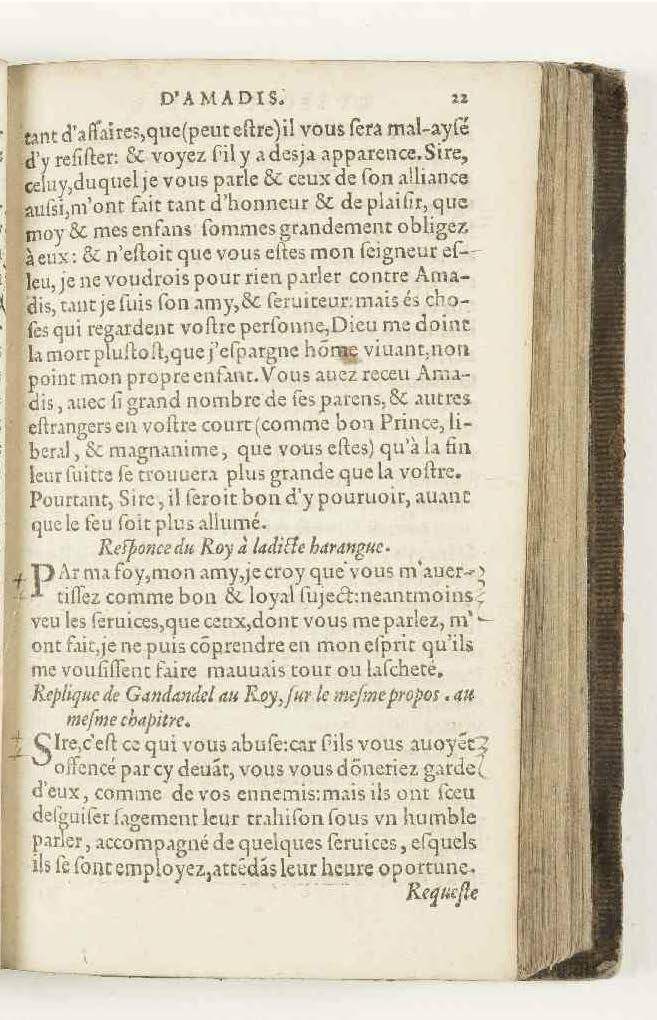 D'AMADIS. 22
tant d'affaires,que(peut eſtre)il vous ſera mal-ayſé
d'y reſiſter: & voyez ſ'il y a desja apparence.Sire,
celuy,duquel je vous parle & ceux de ſon alliance
auſsi,m'ont fait tant d'honneur & de plaiſir, que
moy & mes enfans ſommes grandement obligez
à eux: & n'eſtoit que vous eſtes mon ſeigneur eſ-
leu, je ne voudrois pour rien parler contre Ama-
dis, tant je ſuis ſon amy,& ſeruiteur:mais és cho-
ſes qui regardent voſtre perſonne,Dieu me doint
la mort pluſtoſt,que j'eſpargne hõme viuant,non
point mon propre enfant.Vous auez receu Ama-
dis, auec ſi grand nombre de ſes parens, & autres
eſtrangers en voſtre court(comme bon Prince, li-
beral, & magnanime, que vous eſtes) qu'à la fin
leur ſuitte ſe trouuera plus grande que la voſtre.
Pourtant, Sire, il ſeroit bon d'y pouruoir, auant
que le feu ſoit plus allumé.
Reſponce du Roy à ladicte harangue.
PAr ma foy,mon amy,je croy que vous m'auer-
tiſſez comme bon & loyal ſuject:neantmoins
veu les ſeruices,que ceux,dont vous me parlez, m'
ont fait,je ne puis cõprendre en mon eſprit qu'ils
me vouſiſſent faire mauuais tour ou laſcheté.
Replique de Gandandel au Roy, ſur le meſme propos. au
meſme chapitre.
SIre,c'eſt ce qui vous abuſe:car ſ'ils vous auoyẽt
offencé par cy deuãt, vous vous dõneriez garde
d'eux, comme de vos ennemis:mais ils ont ſceu
deſguiſer ſagement leur trahiſon ſous vn humble
parler, accompagné de quelques ſeruices, eſquels
ils ſe ſont employez,attẽdãs leur heure oportune.
Requeſte